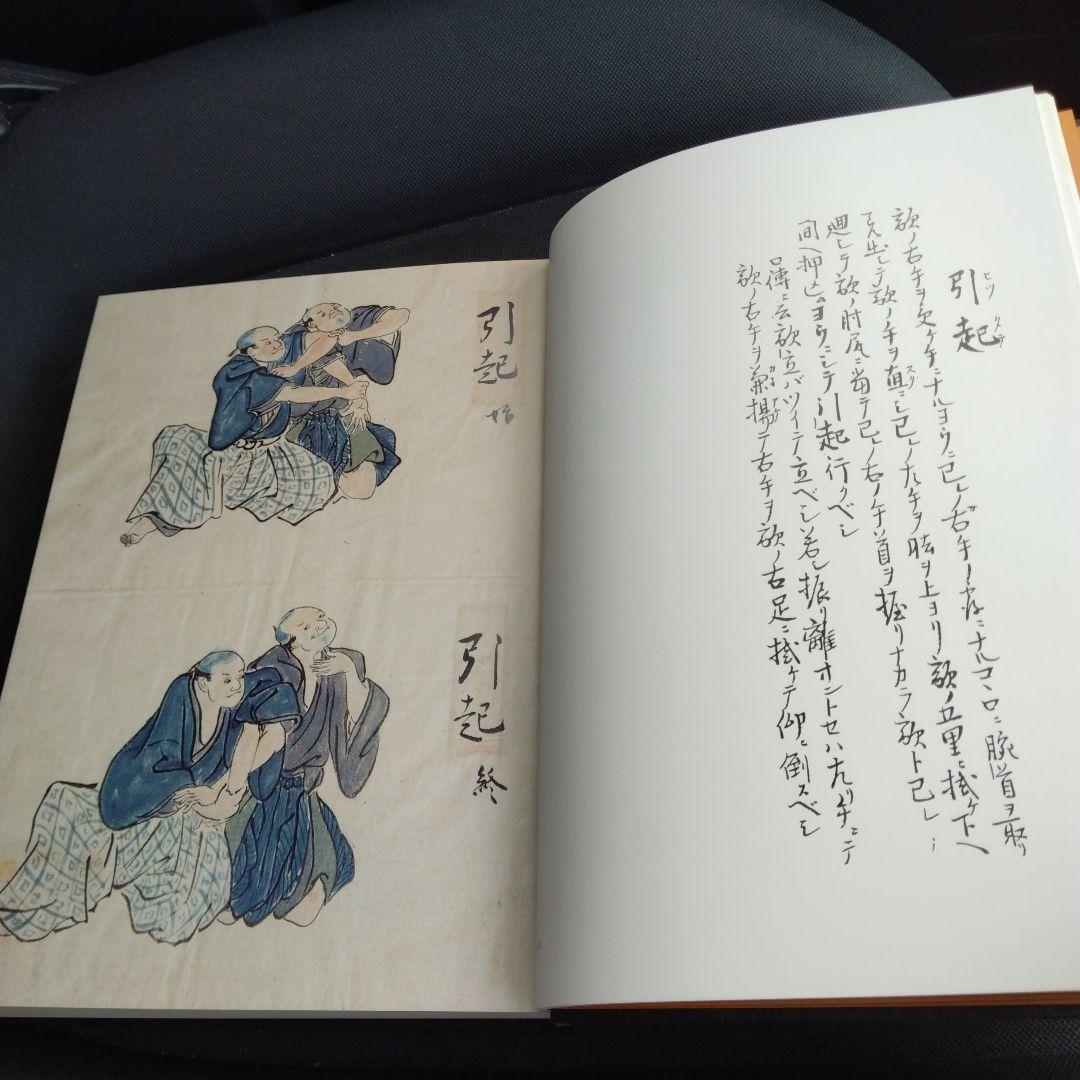 引起
ヒツ
敵ノ右手ヲ
ニナルヨウニ己レノ右手ノ
ニナル
腕首ヲ取リ
出シテ敵ノ手ヲ直ニシ己レノ左手ヲ肱ヲ上ヨリ敵ノ五里ニ掛ケ下ヘ
廻シテ敵ノ肘尻ニ当テ己レノ右ノ手首ヲ握リナカラ敵ト己レ
間ヘ押込ムヨウニシテ引起行クベシ
口傳ニ云敵立バツイテ立ベシ若シ振リ離オントセハ左リ手ニテ
敵ノ右手ヲ
揚テ右手ヲ敵ノ右足ニ掛ケテ仰ニ倒スベシ
引起
始
引起
終